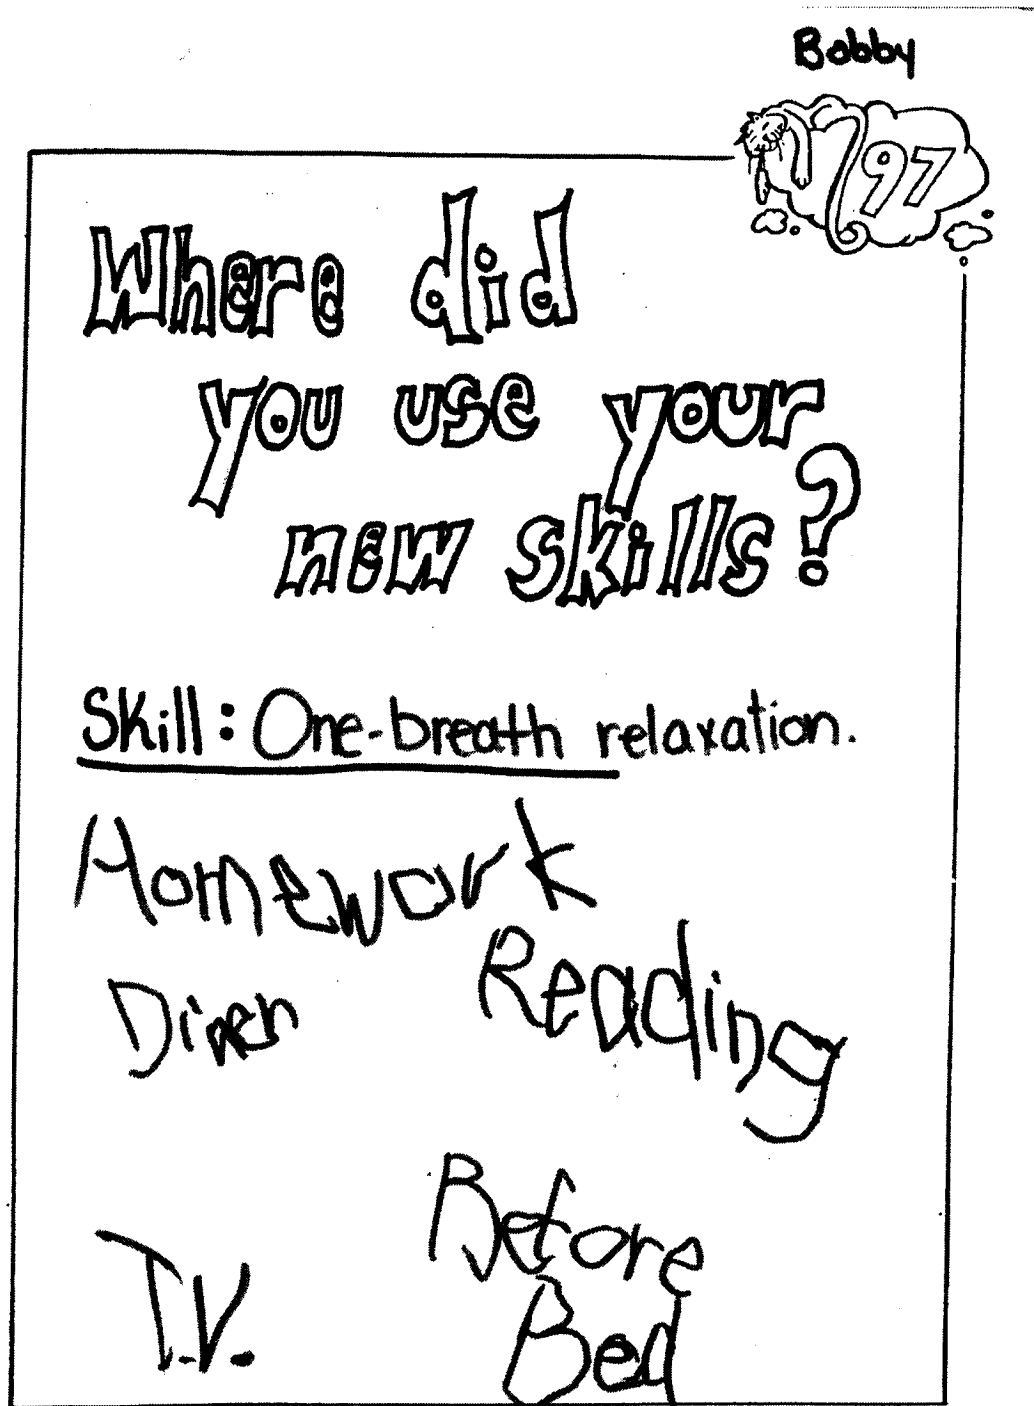 Bobby
97
Where did
you use your
new skills?
Skill: One-breath relaxation.
Homework
Reading
Diner
T.V.
Before
Bed